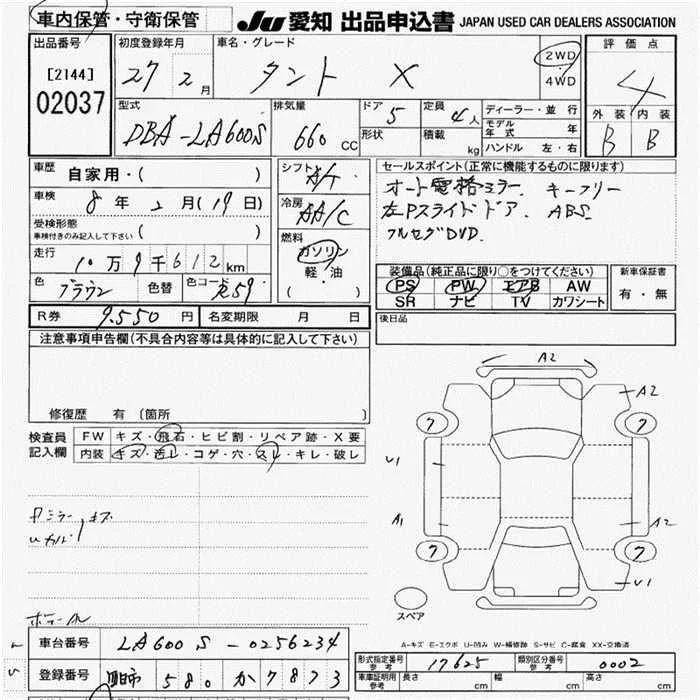 車内保管・守衛保管
JU 愛知 出品申込書 JAPAN USED CAR DEALERS ASSOCIATION
出品番号 初度登録年月 車名・グレード 2WD 評価点
[2144] 27 2月 タント X 4WD 4
02037 型式 排気量 ドア 5 定員 4人 ディーラー・並行 外装 内装
DBA-LA600S 660 CC 形状 積載 kg モデル年式 年 B B
ハンドル 左・右
車歴 自家用・( ) シフト A/T セールスポイント(正常に機能するものに限ります)
車検 8年 2月(19日) 冷房 AA/C オート電格ミラー キーフリー
受検形態 左Pスライドドア ABS
車検付きのみ記入して下さい ( ) 燃料 フルセグDVD
走行 10万9千612km ガソリン 装備品(純正品に限り○をつけてください) 新車保証書
色 ブラウン 色替 色コード 軽・油 PS PW エアB AW 有・無
( ) SR ナビ TV カワシート
R券 9.550円 名変期限 月 日 後日品
注意事項申告欄(不具合内容等は具体的に記入して下さい)
修復歴 有 〔箇所 〕
検査員 FW キズ・飛石・ヒビ割・リペア跡・X要
記入欄 内装 キズ・汚レ・コゲ・穴・スレ・キレ・破レ
A2
A2
7 7
U1
A1 A2
7 7
U1
スペア
A-キズ E-エクボ U-凹み W-補修跡 S-サビ C-腐食 XX-交換済
車台番号 LA600S-0256234
登録番号 580 か 7873
形式指定番号 参考 17625 類別区分番号 参考 0002
車庫証明用 参考 長さ cm 幅 cm 高さ cm